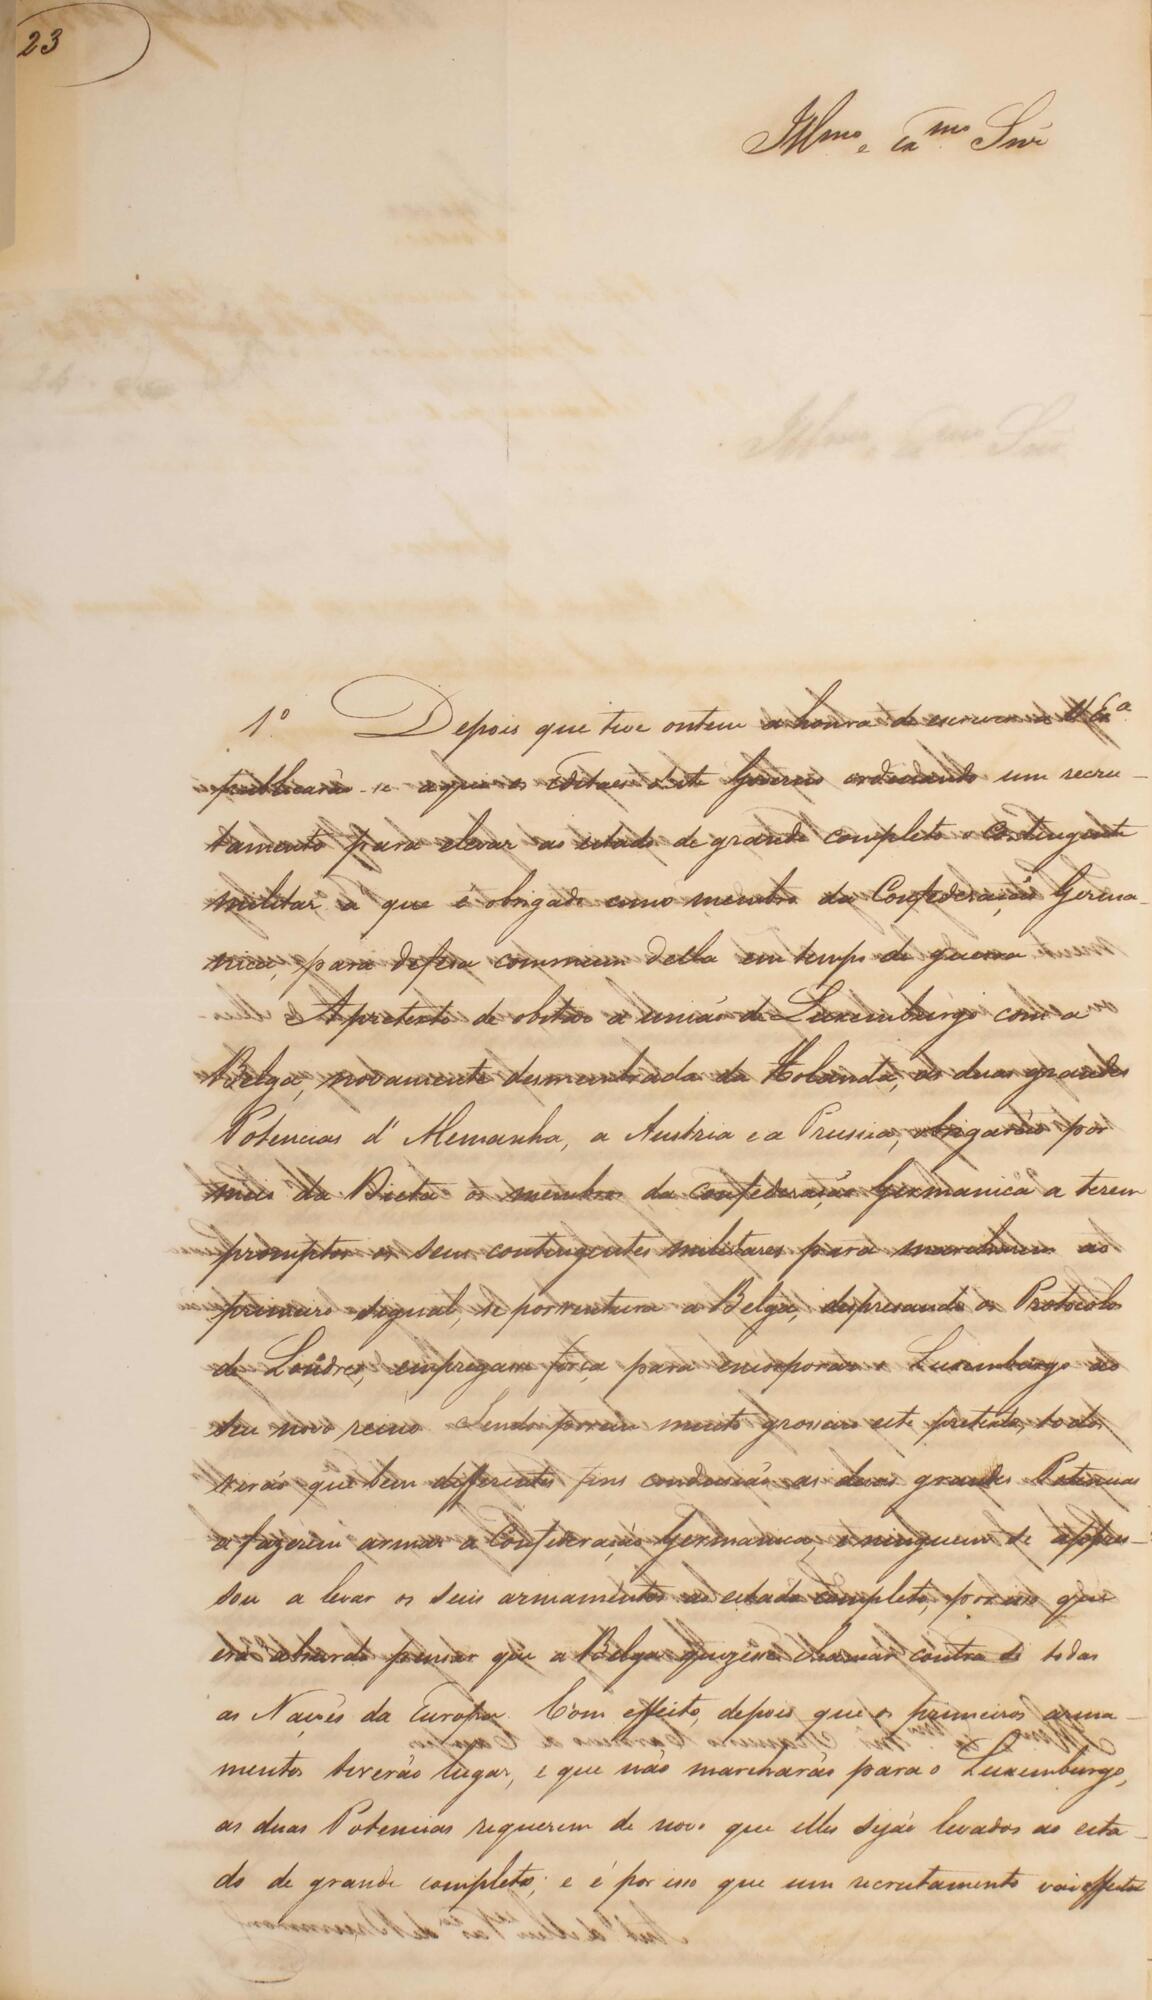 23
Illmo e Exmo Snr
1º Depois que tive ontem a honra de escrever a V Exª
publicarão-se aqui os Editaes deste Governo ordenando um recru-
tamento para elevar ao estado de grande completo o contingente
militar a que é obrigado como membro da Confederação Germa-
nica, para defesa commum della em tempo de guerra
A pretexto de obstar a união de Luxemburgo com a
Belga, novamente desmembrada da Holanda, as duas grandes
Potencias d'Alemanha, a Austria e a Prussia, obrigarão por
meio da Dieta os membros da confederação Germanica a terem
promptos os seus contingentes militares para marcharem ao
primeiro signal, se porventura a Belga, despresando os Protocolos
de Londres, empregara força para encorporar o Luxemburgo ao
seu novo reino Sendo porem muito grosseiro este pretexto, todos
verão que bem differentes fins condusião as duas grandes Potencias
a fazerem armar a Confederação Germanica, e ninguem se apres-
sou a levar os seus armamentos ao estado completo, por isso que
era absurdo pensar que a Belga quizesse chamar contra si todas
as Nações da Europa. Com effeito, depois que os primeiros arma-
mentos teverão lugar, e que não marcharão para o Luxemburgo,
as duas Potencias requerem de novo que elles sejão levados ao esta-
do de grande completo; e é por isso que um recrutamento vai